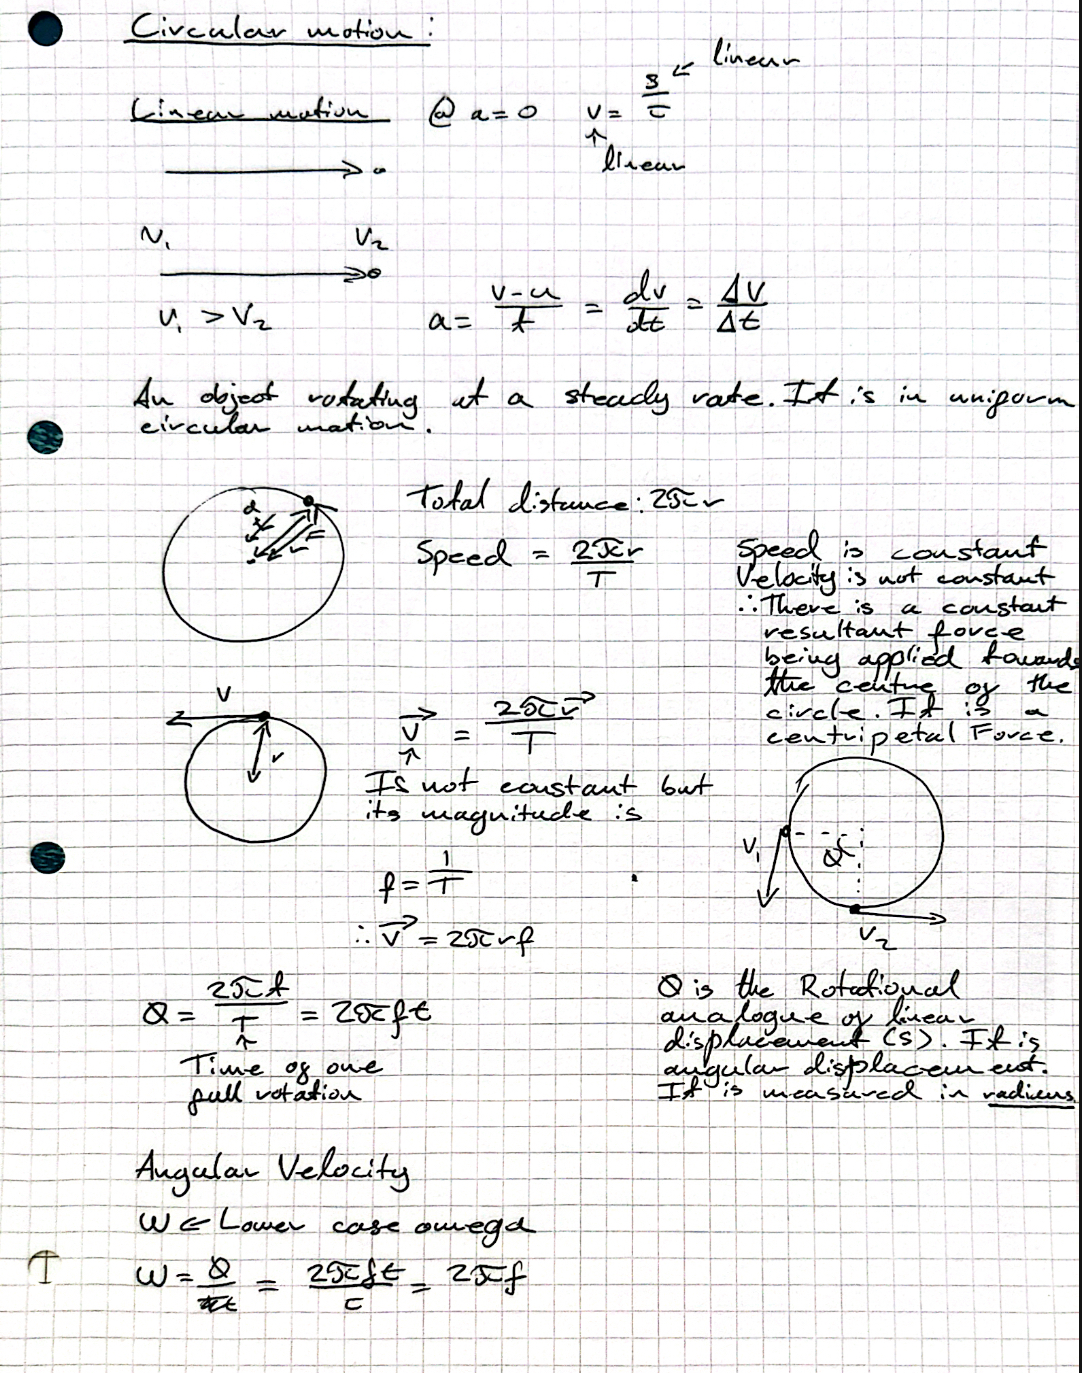 Circular motion:
Linear motion @ a=0 v= s/t ← linear
↑
linear
V₁ V₂
V₁ > V₂ a= v-u/t = dv/dt = Δv/Δt
An object rotating at a steady rate. It is in uniform
circular motion.
Total distance: 2πr
Speed = 2πr/T
a
r
F
Speed is constant
Velocity is not constant
∴ There is a constant
resultant force
being applied towards
the centre of the
circle. It is a
centripetal Force.
V
r
v⃗ = 2πr⃗/T
↑
Is not constant but
its magnitude is
f = 1/T
∴ v⃗ = 2πrf
V₁
θ
V₂
θ = 2πt/T = 2πft
↑
Time of one
full rotation
θ is the Rotational
analogue of linear
displacement (s). It is
angular displacement.
It is measured in radians
Angular Velocity
ω ← Lower case omega
ω = θ/t = 2πft/t = 2πf